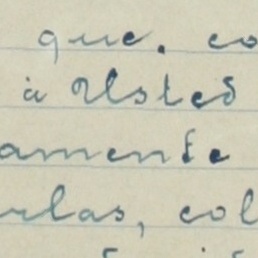 que. co
à Usted
amente
rlas, col